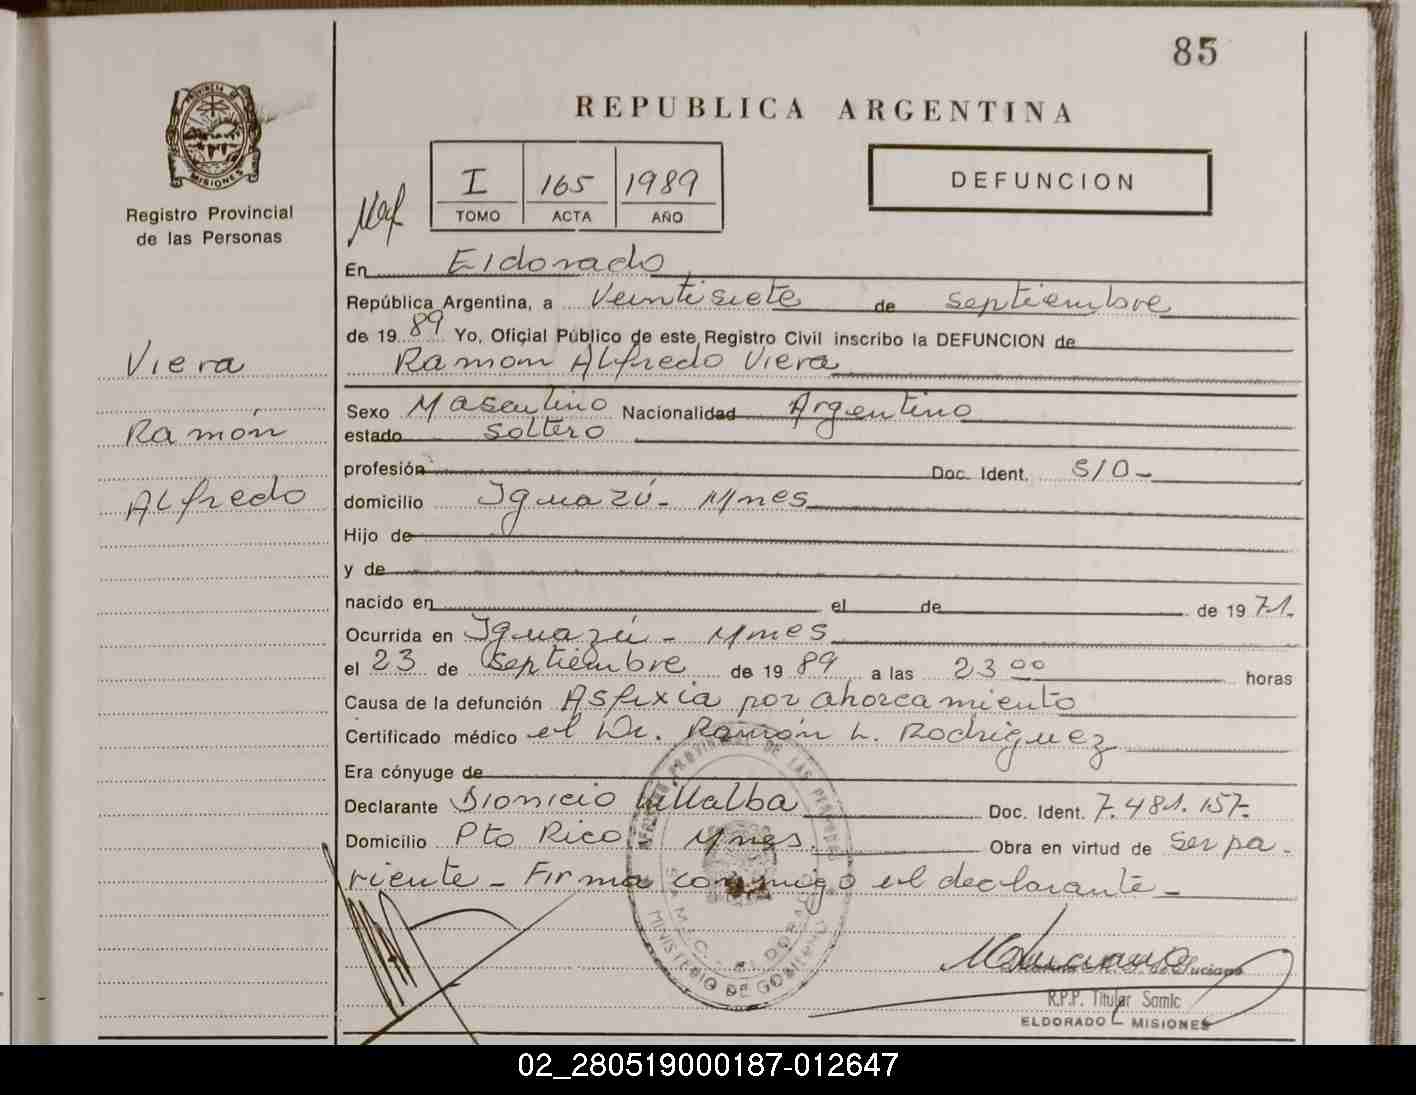 85
REPUBLICA ARGENTINA
PROVINCIA DE MISIONES
Registro Provincial
de las Personas
I 165 1989
TOMO ACTA AÑO
DEFUNCION
Viera
Ramón
Alfredo
En Eldorado
República Argentina, a Veintisiete de septiembre
de 1989 Yo, Oficial Público de este Registro Civil inscribo la DEFUNCION de
Ramon Alfredo Viera
Sexo Masculino Nacionalidad Argentino
estado soltero
profesión Doc. Ident. S/D-
domicilio Iguazú- Mnes
Hijo de
y de
nacido en el de de 1971.
Ocurrida en Iguazú- Mnes
el 23 de Septiembre de 1989 a las 23 00 horas
Causa de la defunción Asfixia por ahorcamiento
Certificado médico el Dr. Ramón L. Rodriguez
Era cónyuge de
Declarante Dionicio Villalba Doc. Ident. 7.481.157-
Domicilio Pto Rico Mnes. Obra en virtud de ser pa-
riente- Firma conmigo el declarante-
REGISTRO PROVINCIAL DE LAS PERSONAS
S.A.M.I.C. - ELDORADO
MINISTERIO DE GOBIERNO
de Luciano
R.P.P. Titular Samic
ELDORADO - MISIONES
02_280519000187-012647